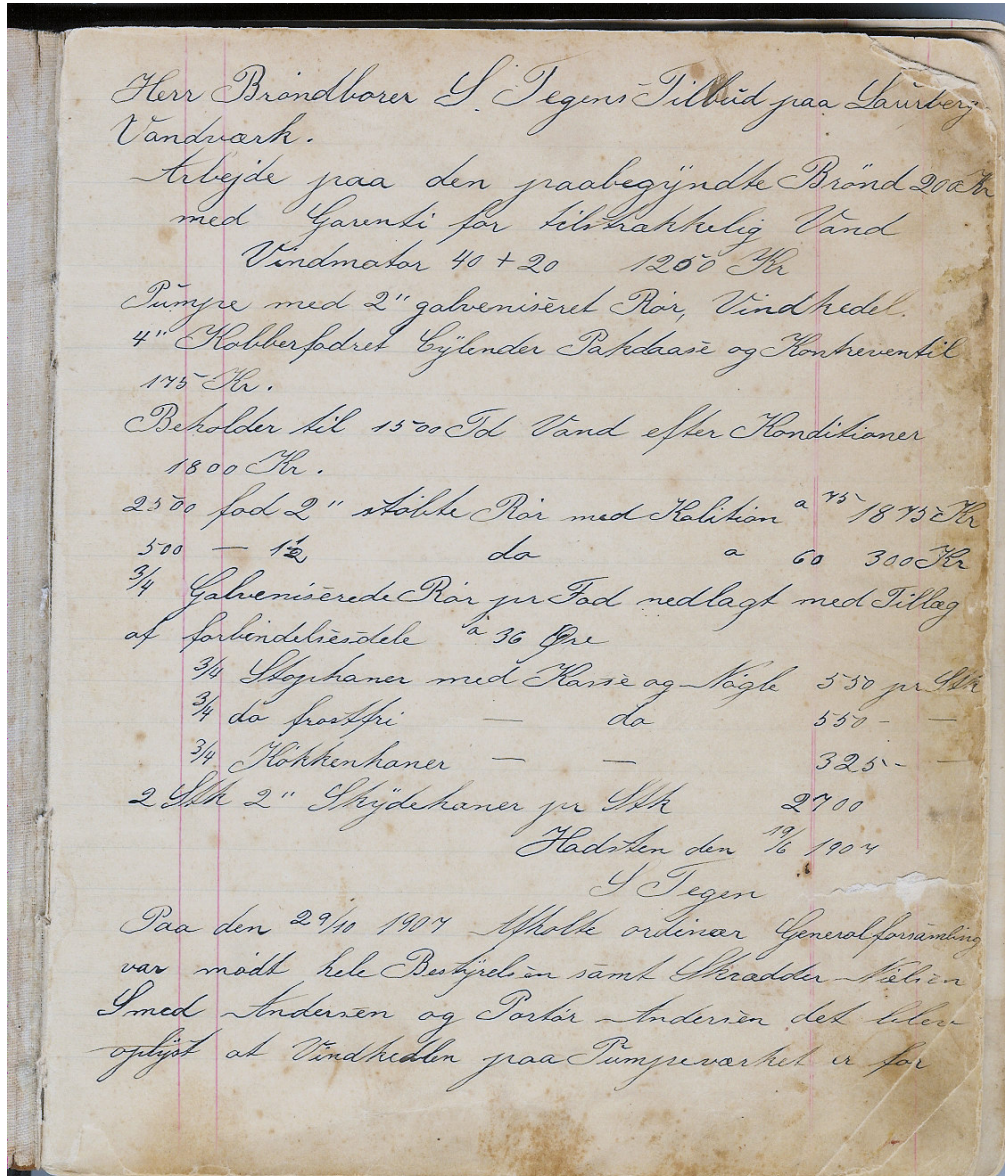 Herr Brøndborer S. Tegens Tilbud paa Laurberg
Vandværk.
Arbejde paa den paabegyndte Brønd 200 Kr
med Garenti for tilstrækkelig Vand
Vindmotor 40 + 20 1250 Kr
Pumpe med 2" galveniseret Rør, Vindkedel.
4" Kobberfodret Cylender Pakdaase og Kontreventil
175 Kr.
Beholder til 1500 Td Vand efter Konditioner
1800 Kr.
2500 fod 2" støbte Rør med Kalition a 75 1875 Kr
500 — 1½ do a 60 300 Kr
3/4 Galveniserede Rør pr Fod nedlagt med Tillæg
af forbindelsesdele à 36 Øre
3/4 Stophaner med Kasse og Nøgle 550 pr Stk
3/4 do frostfri — do 550 - —
3/4 Køkkenhaner — — 325 - —
2 Stk 2" Skydehaner pr Stk 2700
Hadsten den 19/6 1907
S Tegen
Paa den 29/10 1907 Afholte ordinær Generalforsamling
var mødt hele Bestyrelsen samt Skrædder Nielsen
Smed Andersen og Portør Andersen det blev
oplyst at Vindkedlen paa Pumpeværket er for